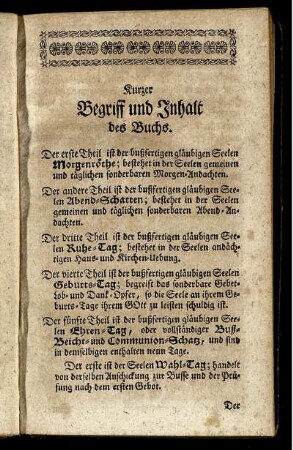 Kurzer
Begriff und Inhalt
des Buchs.
Der erste Theil ist der bußfertigen gläubigen Seelen
Morgenröthe; bestehet in der Seelen gemeinen
und täglichen sonderbaren Morgen-Andachten.
Der andere Theil ist der bußfertigen gläubigen See-
len Abend-Schatten; bestehet in der Seelen
gemeinen und täglichen sonderbaren Abend-An-
dachten.
Der dritte Theil ist der bußfertigen gläubigen See-
len Ruhe-Tag; bestehet in der Seelen andäch-
tigen Haus- und Kirchen-Uebung.
Der vierte Theil ist der bußfertigen gläubigen Seelen
Geburts-Tag; begreift das sonderbare Gebet-
Lob- und Dank-Opfer, so die Seele an ihrem Ge-
burts-Tage ihrem GOtt zu leisten schuldig ist.
Der fünfte Theil ist der bußfertigen gläubigen See-
len Ehren-Tag, oder vollständiger Buß-
Beicht- und Communion-Schatz, und sind
in demselbigen enthalten neun Tage.
Der erste ist der Seelen Wahl-Tag; handelt
von derselben Anschickung zur Busse und der Prü-
fung nach dem ersten Gebot.
Der